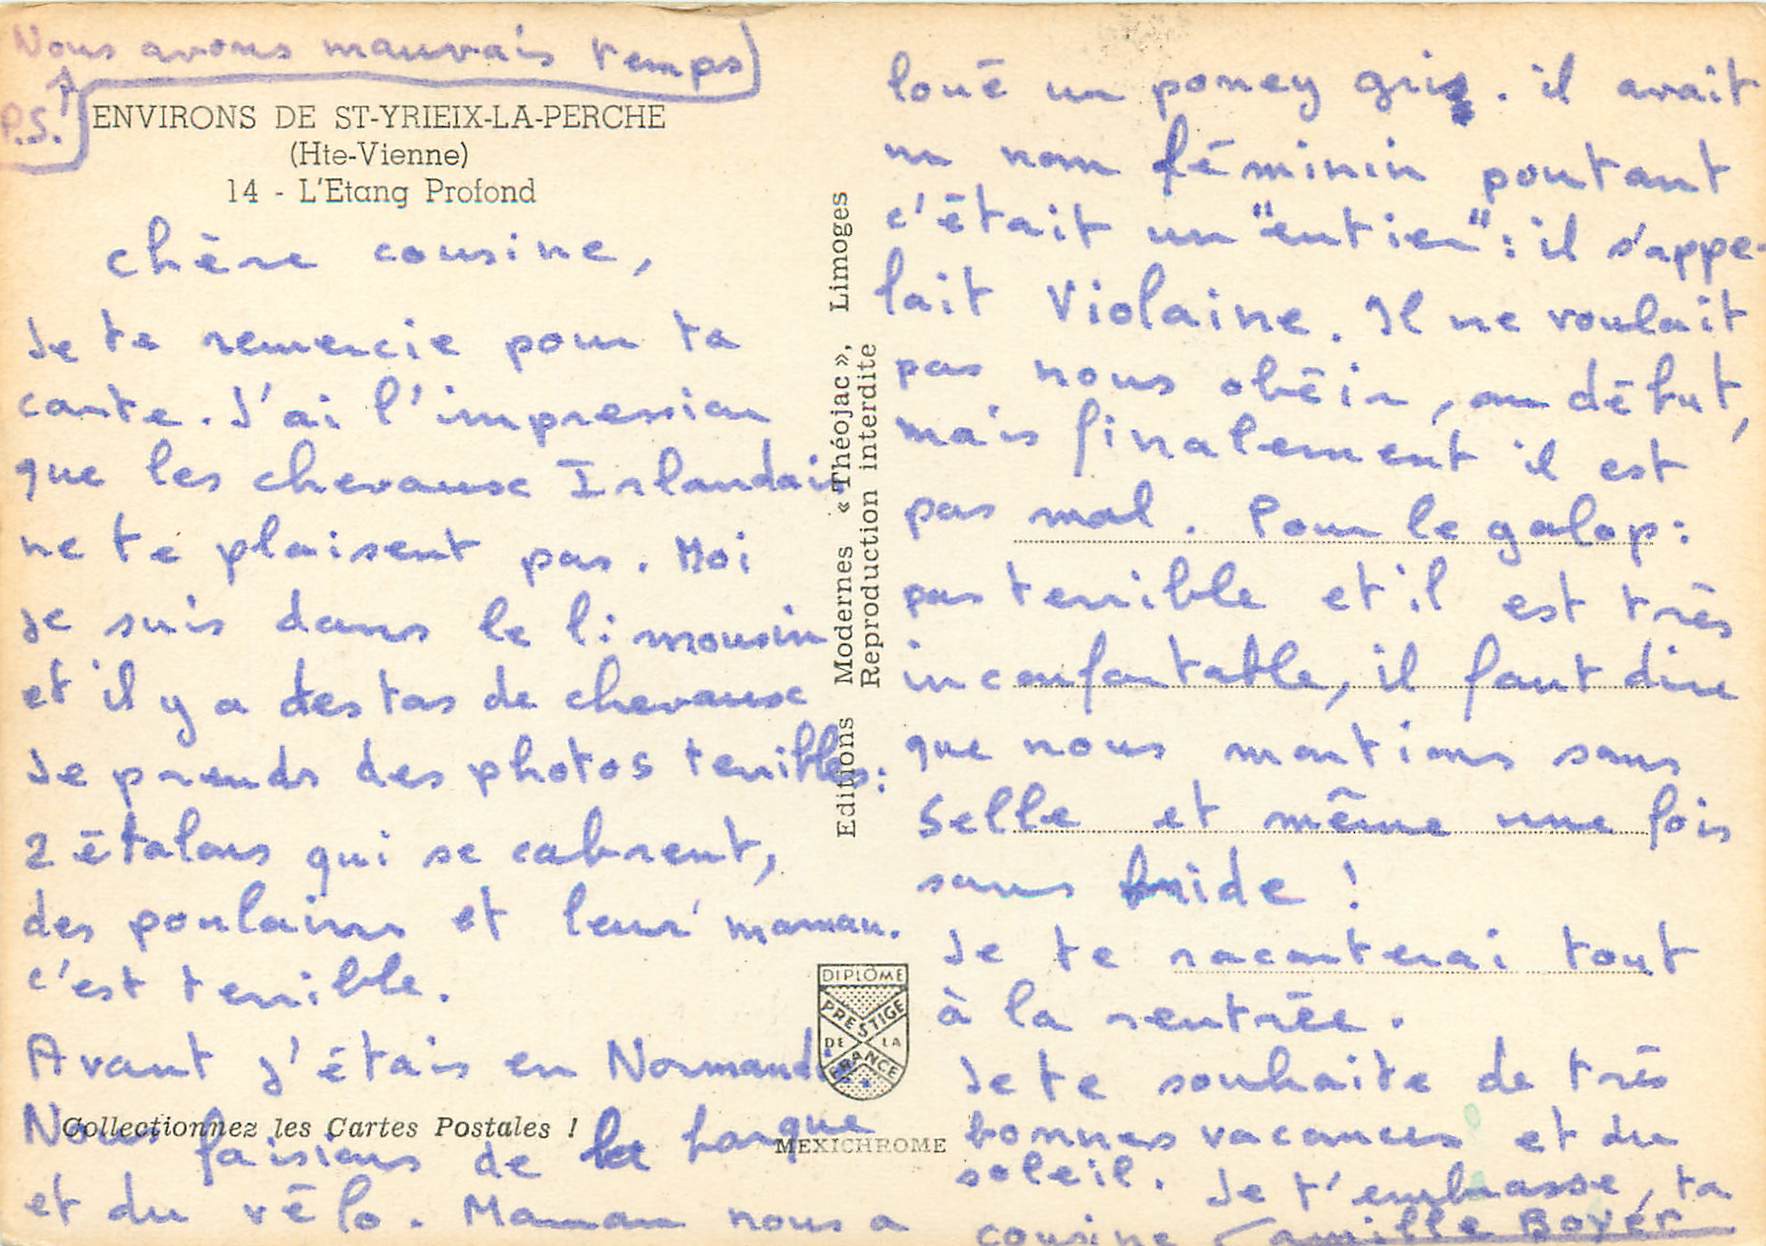 Nous avons mauvais temps
P.S.
ENVIRONS DE ST-YRIEIX-LA-PERCHE
(Hte-Vienne)
14 - L'Etang Profond
chère cousine,
Je te remercie pour ta
carte. J'ai l'impression
que les chevaux Irlandais
ne te plaisent pas. Moi
je suis dans le limousin
et il y a des tas de chevaux
Je prends des photos terribles:
2 étalons qui se cabrent,
des poulains et leur maman.
c'est terrible.
Avant j'étais en Normandie.
Nous faisions de la barque
et du vélo. Maman nous a
Collectionnez les Cartes Postales !
Editions Modernes « Théojac », Limoges
Reproduction interdite
DIPLÔME
PRESTIGE
DE LA
FRANCE
MEXICHROME
loué un poney gris. il avait
un nom féminin pourtant
c'était un "entier": il s'appe-
lait Violaine. Il ne voulait
pas nous obéir, au début,
mais finalement il est
pas mal. Pour le galop:
pas terrible et il est très
inconfortable, il faut dire
que nous montions sans
selle et même une fois
sans bride !
Je te raconterai tout
à la rentrée.
Je te souhaite de très
bonnes vacances et du
soleil. Je t'embrasse, ta
cousine Camille Boyer